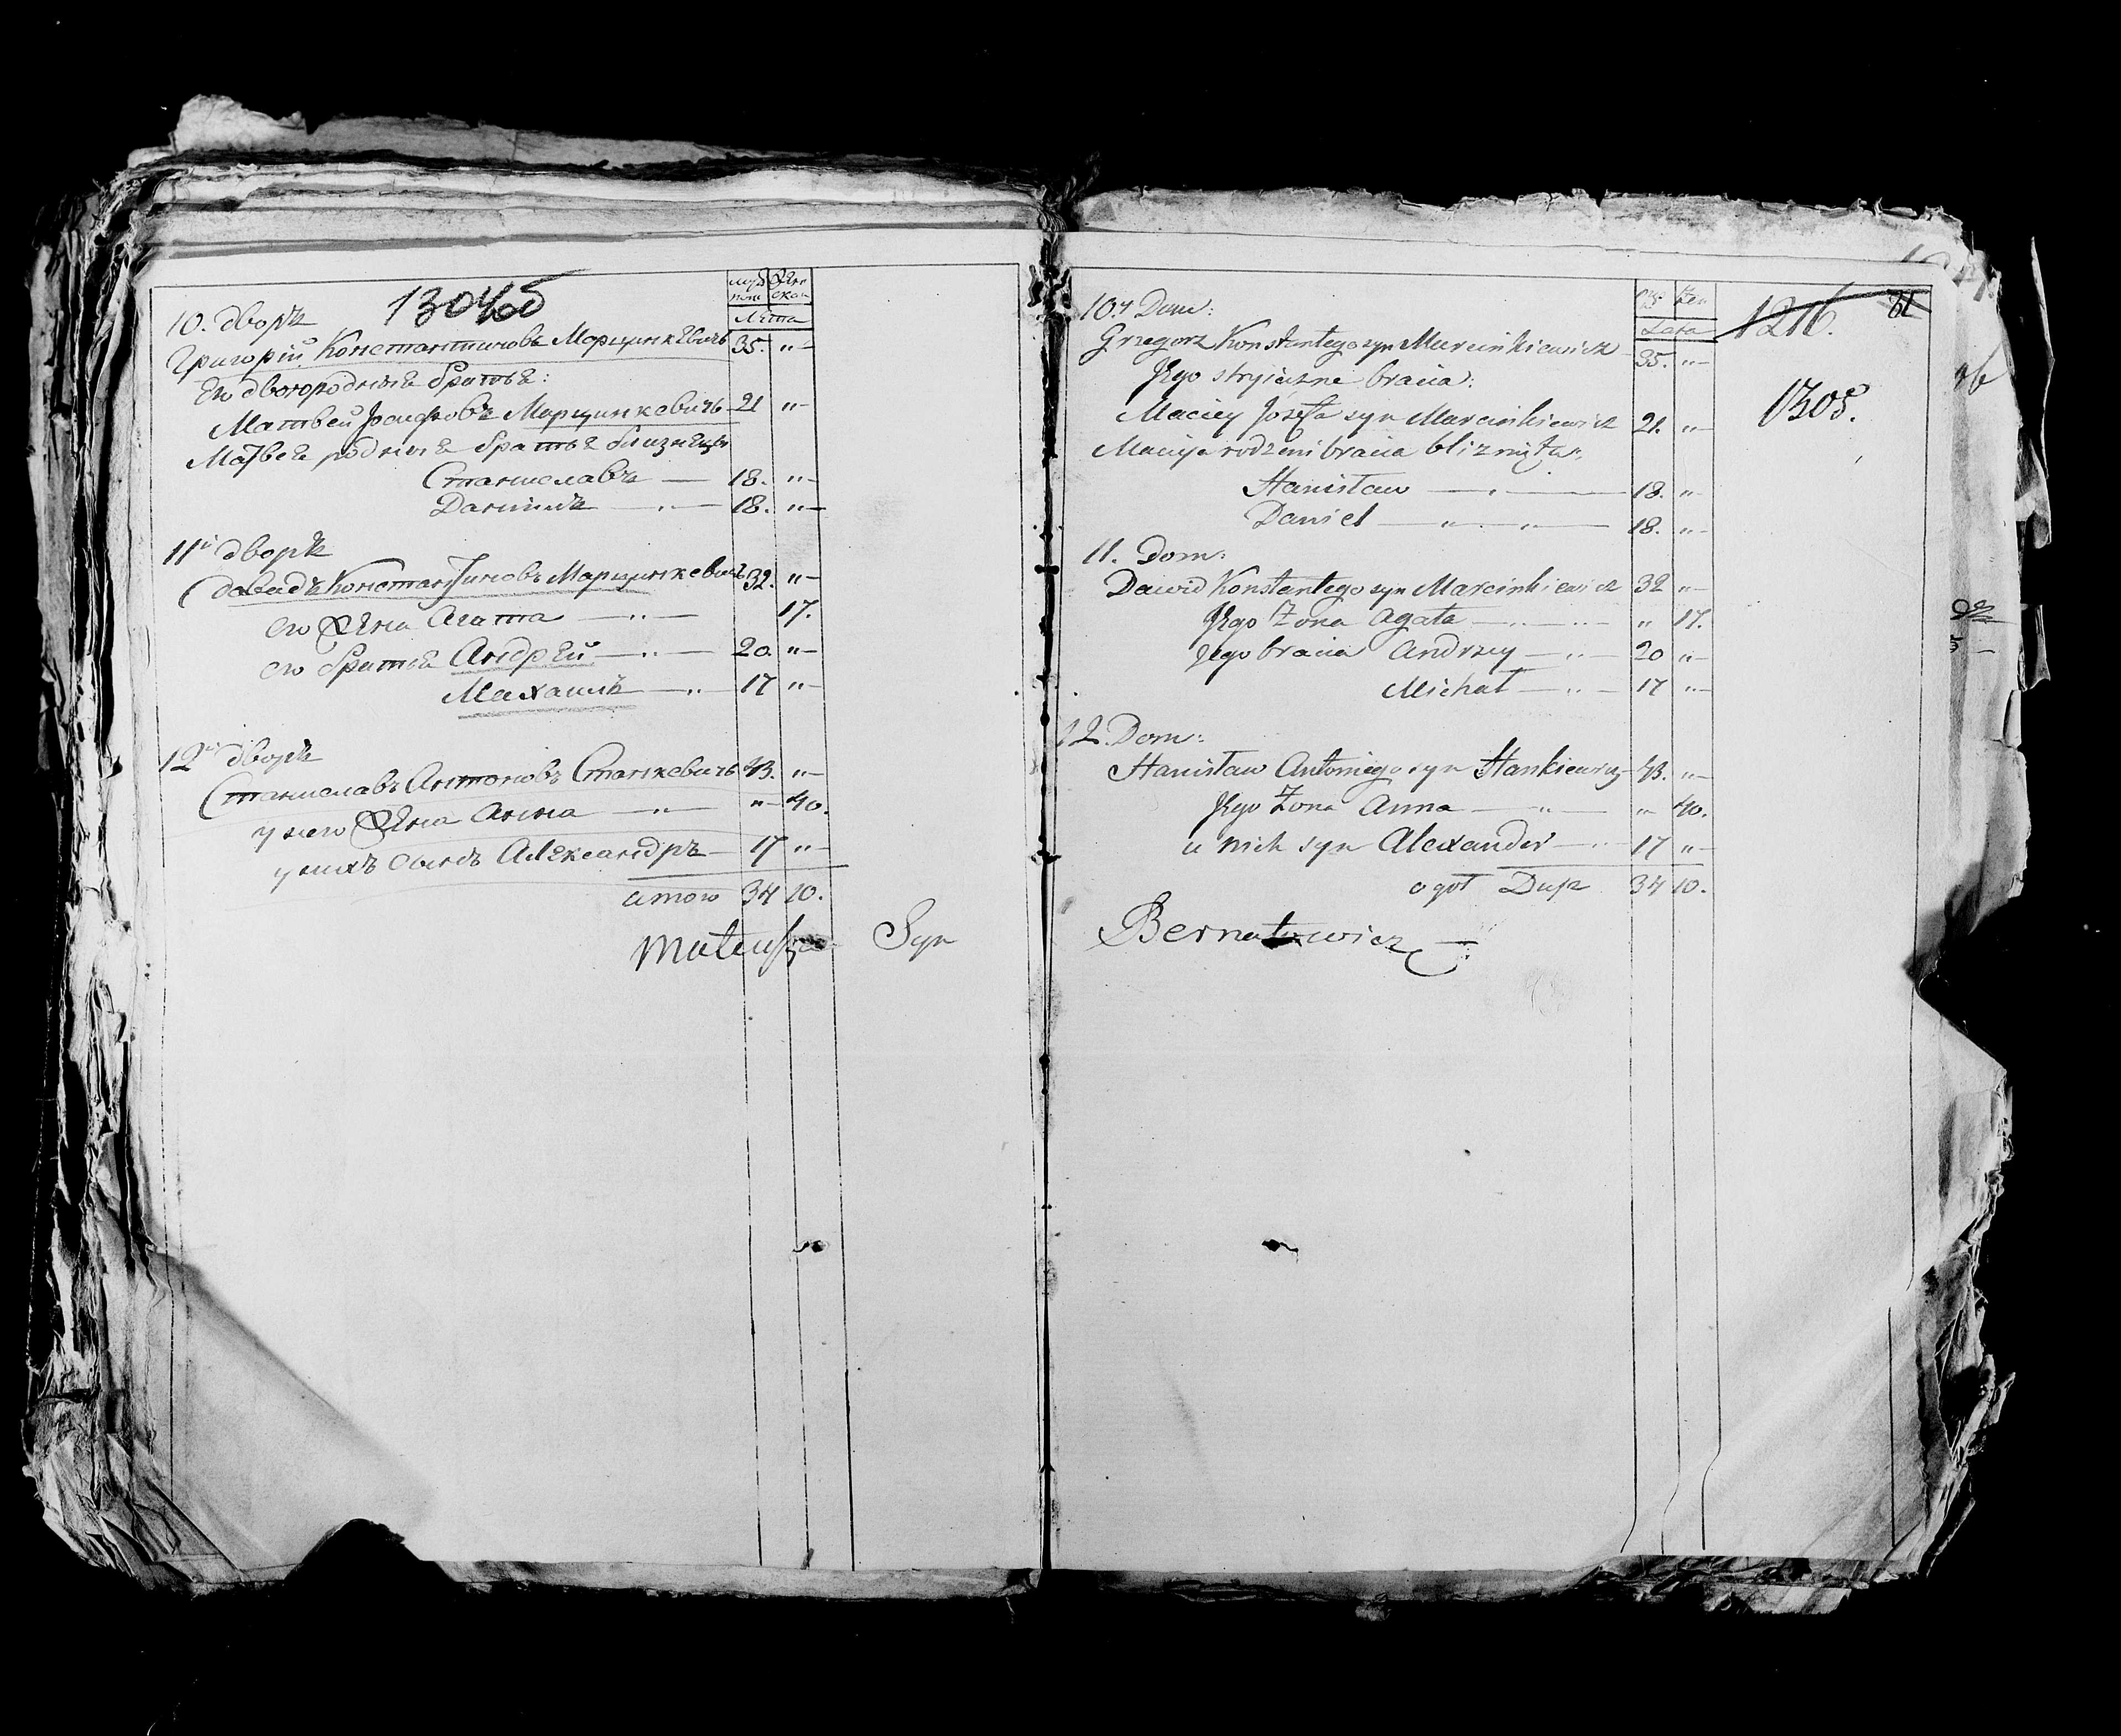 1304об
муж женска
Лѣта
10. дворъ
Григорій Константиновъ Марцинкевичъ 35. "
Его двоюродныѣ братьѣ:
Матвей Іосифовъ Марцинкевичъ 21 "
Матвея родныѣ братьѣ близнецы
Станиславъ — 18. "
Данiилъ — " — 18. "
11й дворъ
Давидъ Константиновъ Марцинкевичъ 32. "
его Жена Агата — " — 17.
его братьѣ Андрей — " — 20. "
Михаилъ — " — 17 "
12й дворъ
Станиславъ Антоновъ Станкевичъ 43. "
у него Жена Анна — " — " 40.
у нихъ сынъ Александръ — 17 "
итого 34 10.
Mateusza Syn
Lata
1216.
61
1305.
10.y Dom:
Grzegorz Konstantego syn Marcinkiewicz 35. "
Jego stryieczne bracia:
Maciey Józefa syn Marcinkiewicz 21. "
Macieja rodzeni bracia bliznięta:
Stanisław — " — 18. "
Daniel — " — " — 18. "
11. Dom:
Dawid Konstantego syn Marcinkiewicz 32 "
Jego Żona Agata — " — " 17.
Jego bracia Andrzey — " — 20 "
Michał — " — 17 "
12. Dom:
Stanisław Antoniego syn Stankiewicz 43. "
Jego Żona Anna — " — " 40.
u nich syn Alexander — " 17 "
ogół Dusz 34 10.
Bernatowicz